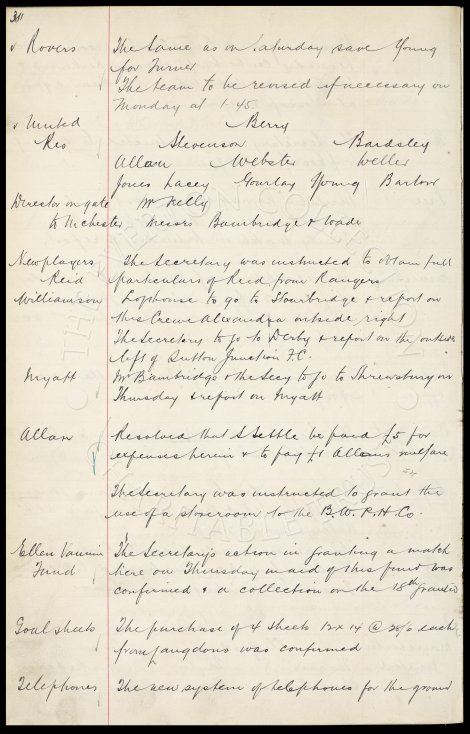 311
v Rovers The same as on Saturday save Young
for Turner
The team to be revised if necessary on
Monday at 1.45.
v United Berry
Res Stevenson Bardsley
Allan Webster Weller
Jones Lacey Gourlay Young Barlow
Director on gate Mr Kelly
to Mchester Messrs Bainbridge & Wade
New players The Secretary was instructed to obtain full
Reid particulars of Reid from Rangers
Williamson Lofthouse to go to Stourbridge & report on
this Crewe Alexandra outside right
The Secretary to go to Derby & report on the outside
left of Sutton Junction F.C.
Myatt Mr Bainbridge & the Secy to go to Shrewsbury on
Thursday & report on Myatt
Allan Resolved that S Settle be paid £5 for
expenses herein & to pay £1 Allan's welfare
The Secretary was instructed to grant the
use of a storeroom to the B.W.P.H.Co.
Ellen Vannin The Secretary's action in granting a match
Fund here on Thursday in aid of this fund was
confirmed & a collection on the 18th granted
Goal sheets The purchase of 4 sheets 12 x 14 @ each
from Langdons was confirmed
Telephones The new system of telephones for the ground